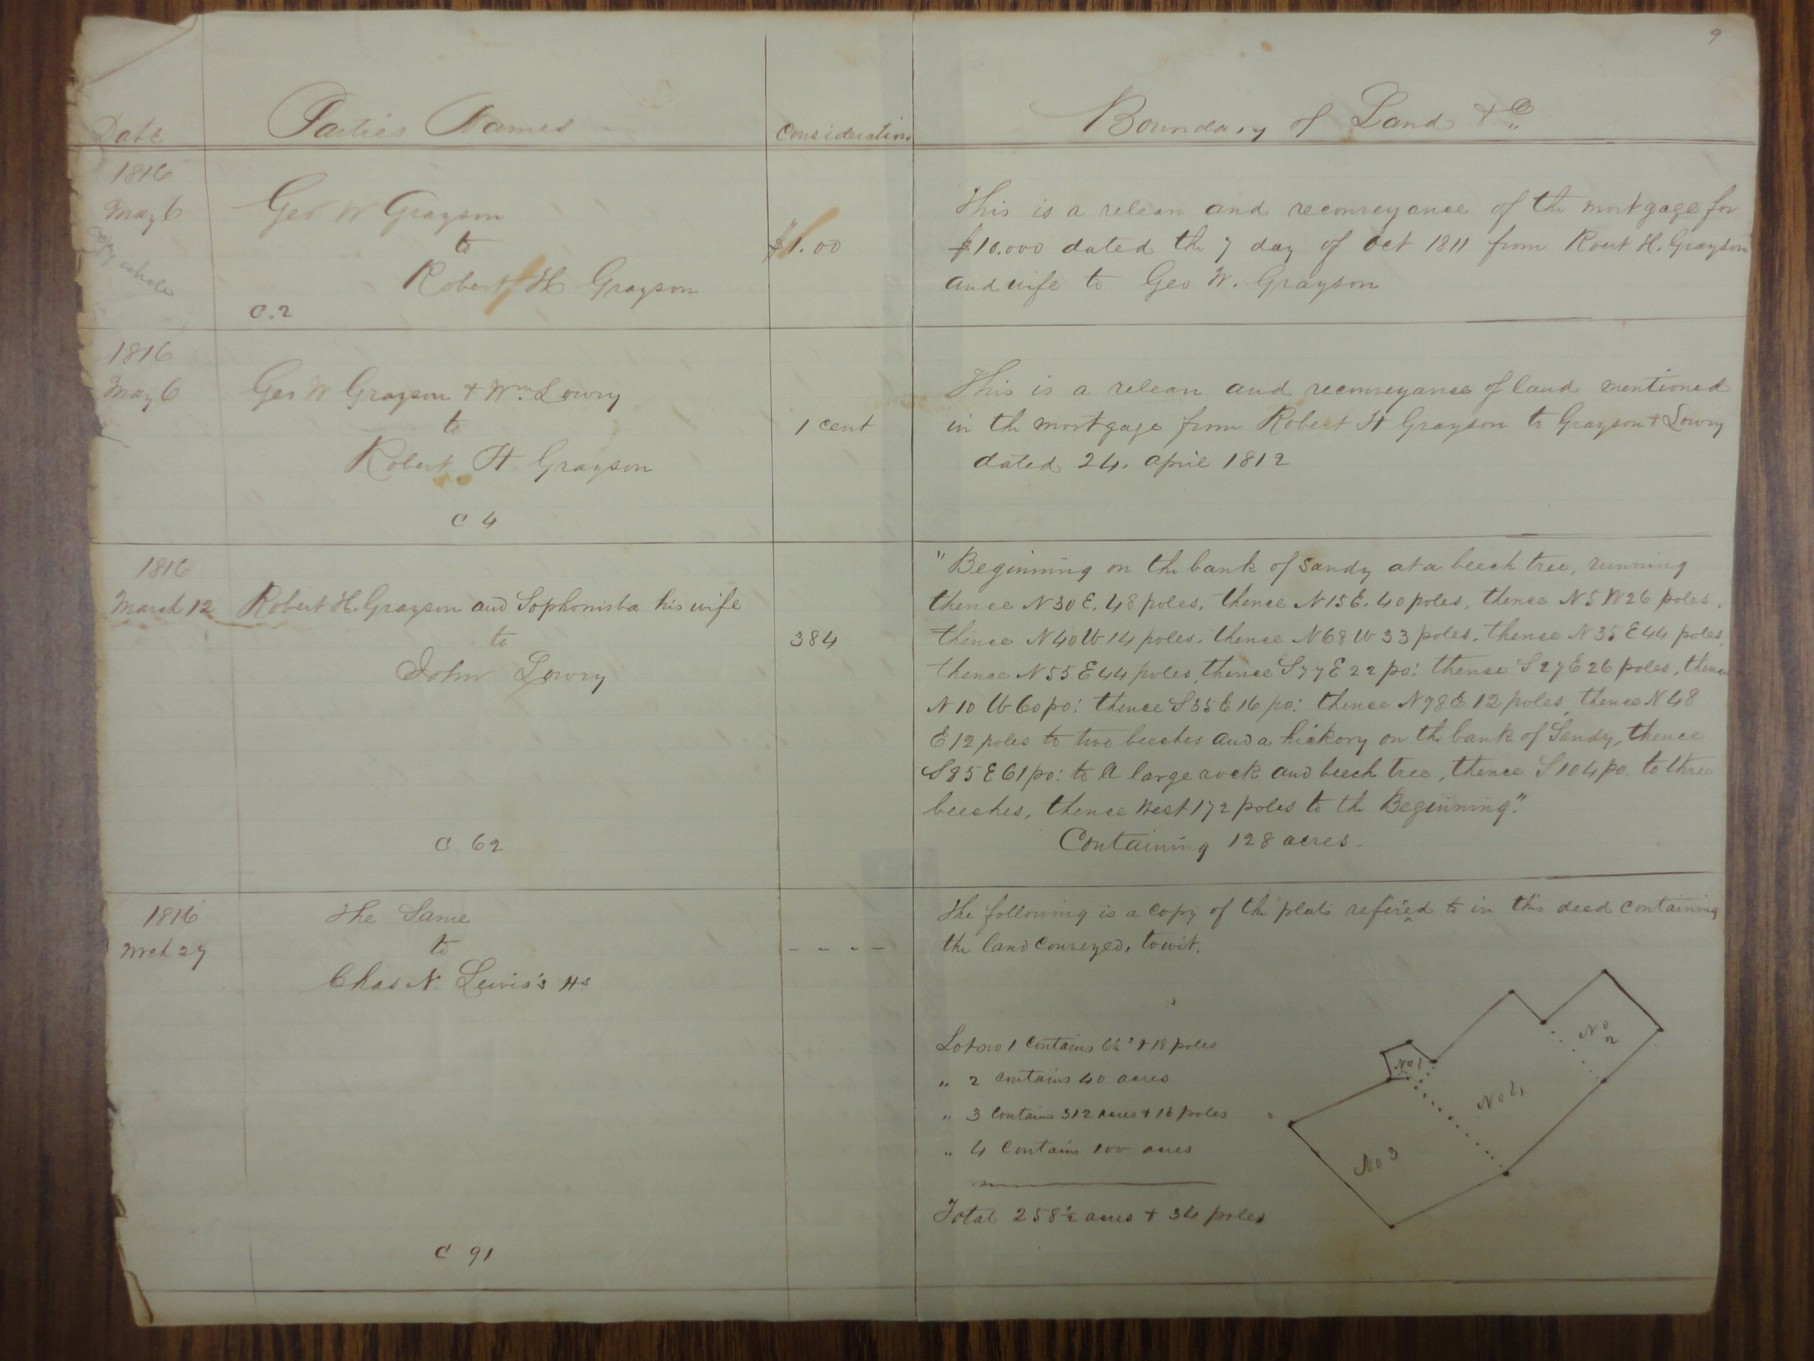 9
Date Parties Names Consideration Boundary of Land & Co
1816
May 6
copy whole
Geo W Grayson
to
Robert H Grayson
C. 2
$1.00
This is a releas and reconveyance of the mortgage for
$10.000 dated the 7 day of Oct 1811 from Robert H. Grayson
and wife to Geo W. Grayson
1816
May 6
Geo W Grayson & Wm Lowry
to
Robert H Grayson
C 4
1 cent
This is a releas and reconveyance of land mentioned
in the mortgage from Robert H Grayson to Grayson & Lowry
dated 24. april 1812
1816
March 12
Robert H. Grayson and Sophonisba his wife
to
John Lowry
C. 62
384
"Beginning on the bank of Sandy at a beech tree, running
thence N30E. 48 poles, thence N15E. 40 poles, thence N5W26 poles,
thence N40W14 poles. thence N68W33 poles. thence N35E44 poles,
thence N55E44 poles, thence S77E22 po: thence S27E26 poles, thence
N10W60po: thence S35E16 po: thence N78E12 poles, thence N48
E12 poles to two beeches and a hickory on the bank of Sandy, thence
S85E61po: to a large rock and beech tree, thence S104po. to three
beeches, thence West 172 poles to the Beginning".
Containing 128 acres.
1816
Mrch 27
The Same
to
Chas N. Lewis's Hs
C 91
- - - -
The following is a copy of the plats refered to in this deed containing
the land conveyed, towit.
Lot no 1 contains 6½ & 18 poles
" 2 contains 40 acres
" 3 contains 312 acres & 16 poles
" 4 contains 100 acres
Total 258½ acres & 34 poles
No 1
No 2
No 4
No 3